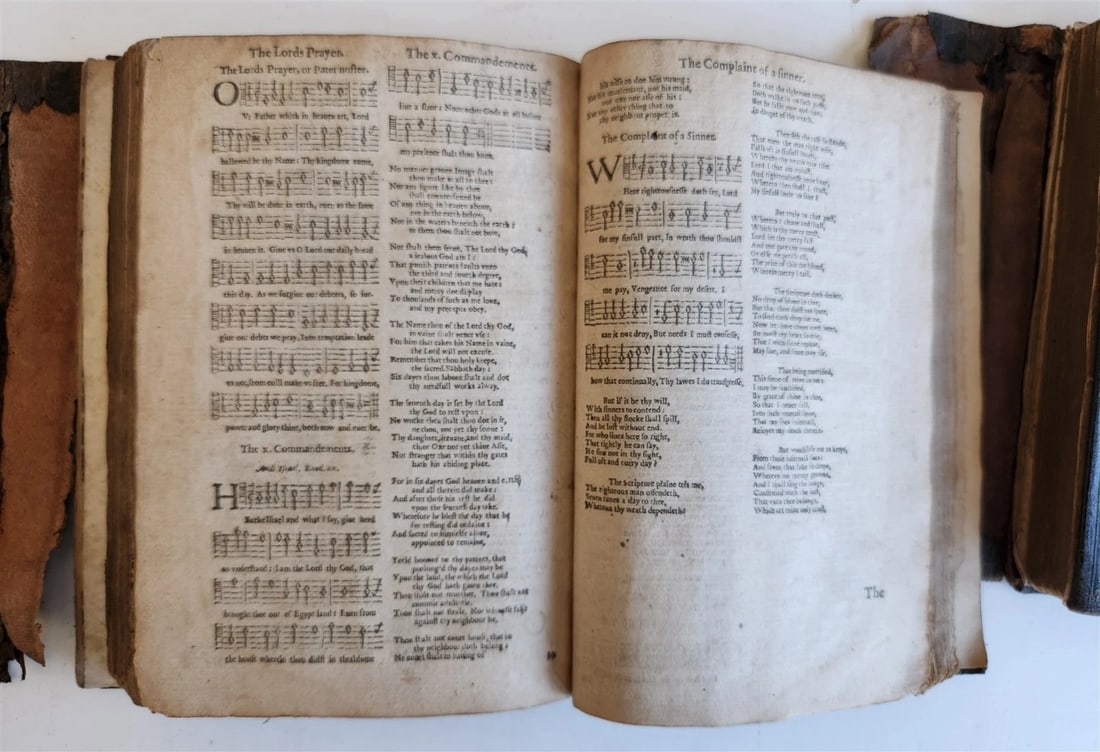 The Lords Prayer.
The Lords Prayer, or Pater noster.
OVr Father which in heauen art, Lord
hallowed be thy Name: Thy kingdome come,
Thy will be done in earth, euen as the same
in heauen is. Giue vs O Lord our daily bread
this day. As we forgiue our debters, so for-
giue our debts we pray, Into temptation leade
vs not, from euill make vs free. For kingdome,
power and glory thine, both now and euer be.
The x. Commandements.
HArke Israel and what I say, giue heed
to vnderstand: I am the Lord thy God, that
brought thee out of Egypt land: Euen from
the house wherein thou didst in thraldome
The x. Commandements.
liue a slaue: None other Gods at all before
my presence shalt thou haue.
No manner grauen Image shalt
thou make at all to thee:
Nor any figure like by thee
shall counterfeited be
Of any thing in heauen aboue,
nor in the earth below,
Nor in the waters beneath the earth:
to them thou shalt not bow,
Nor shalt them serue, The Lord thy God,
a iealous God am I:
That punish parents faults vnto
the third and fourth degree,
Vpon their children that me hate:
and mercy doe display
To thousands of such as me loue,
and my precepts obey.
The Name thou of the Lord thy God,
in vaine shalt neuer vse:
For him that takes his Name in vaine,
the Lord will not excuse.
Remember that thou holy keepe,
the sacred Sabbath day:
Six dayes thou labour shalt and doe
thy needfull works alway.
The seuenth day is set by the Lord
thy God to rest vpon:
No worke then shalt thou doe in it,
ne thou, nor yet thy sonne:
Thy daughter, seruant, and thy maid,
thine Oxe nor yet thine Asse,
Nor stranger that within thy gates
hath his abiding place.
For in six dayes God heauen and earth
and all therein did make:
And after those his rest he did
vpon the seuenth day take.
Wherefore he blest the day that he
for resting did ordaine:
And sacred to himselfe alone,
appointed to remaine.
Yeeld honour to thy parents, that
prolong'd thy dayes may be
Vpon the land, the which the Lord
thy God hath giuen thee.
Thou shalt not murther. Thou shalt not
commit adulterie.
Thou shalt not steale. Nor witnesse false
against thy neighbour be.
Thou shalt not couet house, that to
thy neighbour doth belong:
Ne couet shalt in hauing of
The Complaint of a sinner.
his wife to doe him wrong:
Nor his manseruant, nor his maid,
nor oxe nor asse of his:
Nor any other thing that to
thy neighbour proper is.
The Complaint of a Sinner.
WHere righteousnesse doth say, Lord
for my sinfull part, In wrath thou shouldst
me pay, Vengeance for my desert, I
can it not deny, But needs I must confesse,
how that continually, Thy lawes I do transgresse.
But if it be thy will,
With sinners to contend:
Then all thy flocke shall spill,
And be lost without end.
For who liues here so right,
That rightly he can say,
He sins not in thy sight,
Full oft and euery day?
The Scripture plaine tels me,
The righteous man offendeth,
Seuen times a day to thee,
Whereon thy wrath dependeth:
So that the righteous man,
Doth walke in no such path,
But he falls now and than,
In danger of thy wrath.
Then sith the case so stands,
That euen the man right wise,
Falls oft in sinfull bands,
Whereby thy wrath may rise:
Lord I that am vniust,
And righteousnesse none haue,
Whereto then shall I trust,
My sinfull soule to saue?
But truly to that post,
Whereto I cleaue and shall,
Which is thy mercy most,
Lord let thy mercy fall
And me
The price of this thy blood,
Wherein mercy I call.
The Scripture doth declare,
No drop of blood in thee,
But that thou didst not spare,
To shed each drop for me.
Now let those drops most sweet,
So moist my heart so drie,
That I with sinne replete,
May liue, and sinne may die.
That being mortified,
This sinne of mine in me:
I may be sanctified,
By grace of thine in thee,
So that I neuer fall,
Into such mortall sinne,
That my foes infernall,
Reioyce my death therein.
But vouchsafe me to keepe,
From those infernall foes:
And from that lake so deepe,
Whereas no mercy growes,
And I shall sing the songs,
Confirmed with the iust,
That vnto thee belongs,
Which art mine only trust.
The